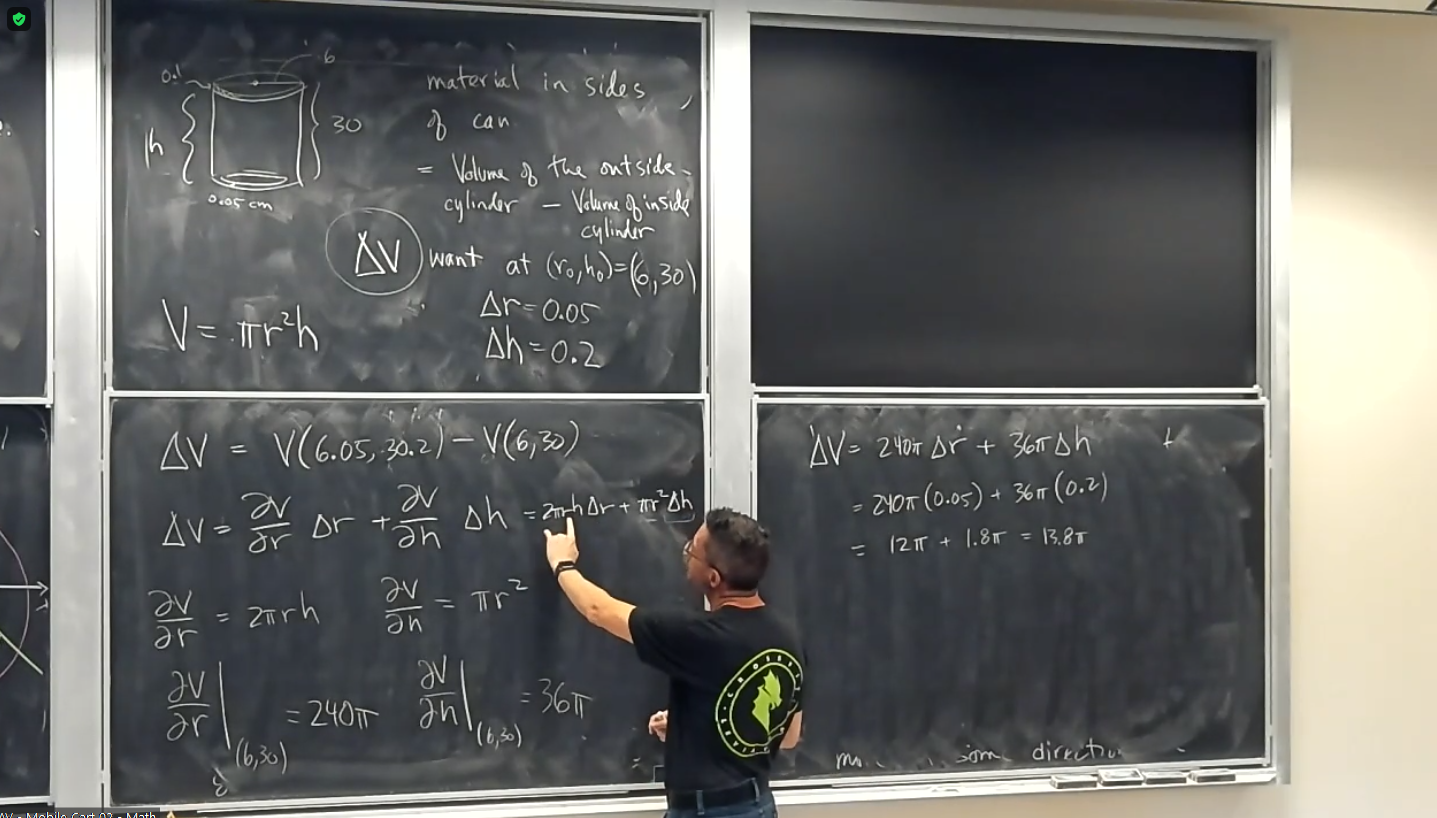 0.1
6
h
30
0.05 cm
material in sides
of can
= Volume of the outside
cylinder - Volume of inside
cylinder
ΔV want at (r₀,h₀)=(6,30)
Δr=0.05
Δh=0.2
V = πr²h
ΔV = V(6.05,30.2)-V(6,30)
ΔV = ∂V/∂r Δr + ∂V/∂h Δh = 2πrh Δr + πr² Δh
∂V/∂r = 2πrh ∂V/∂h = πr²
∂V/∂r|(6,30) = 240π ∂V/∂h|(6,30) = 36π
ΔV = 240π Δr + 36π Δh
= 240π(0.05) + 36π(0.2)
= 12π + 1.8π = 13.8π
direction
Mobile Cart 02 - Math